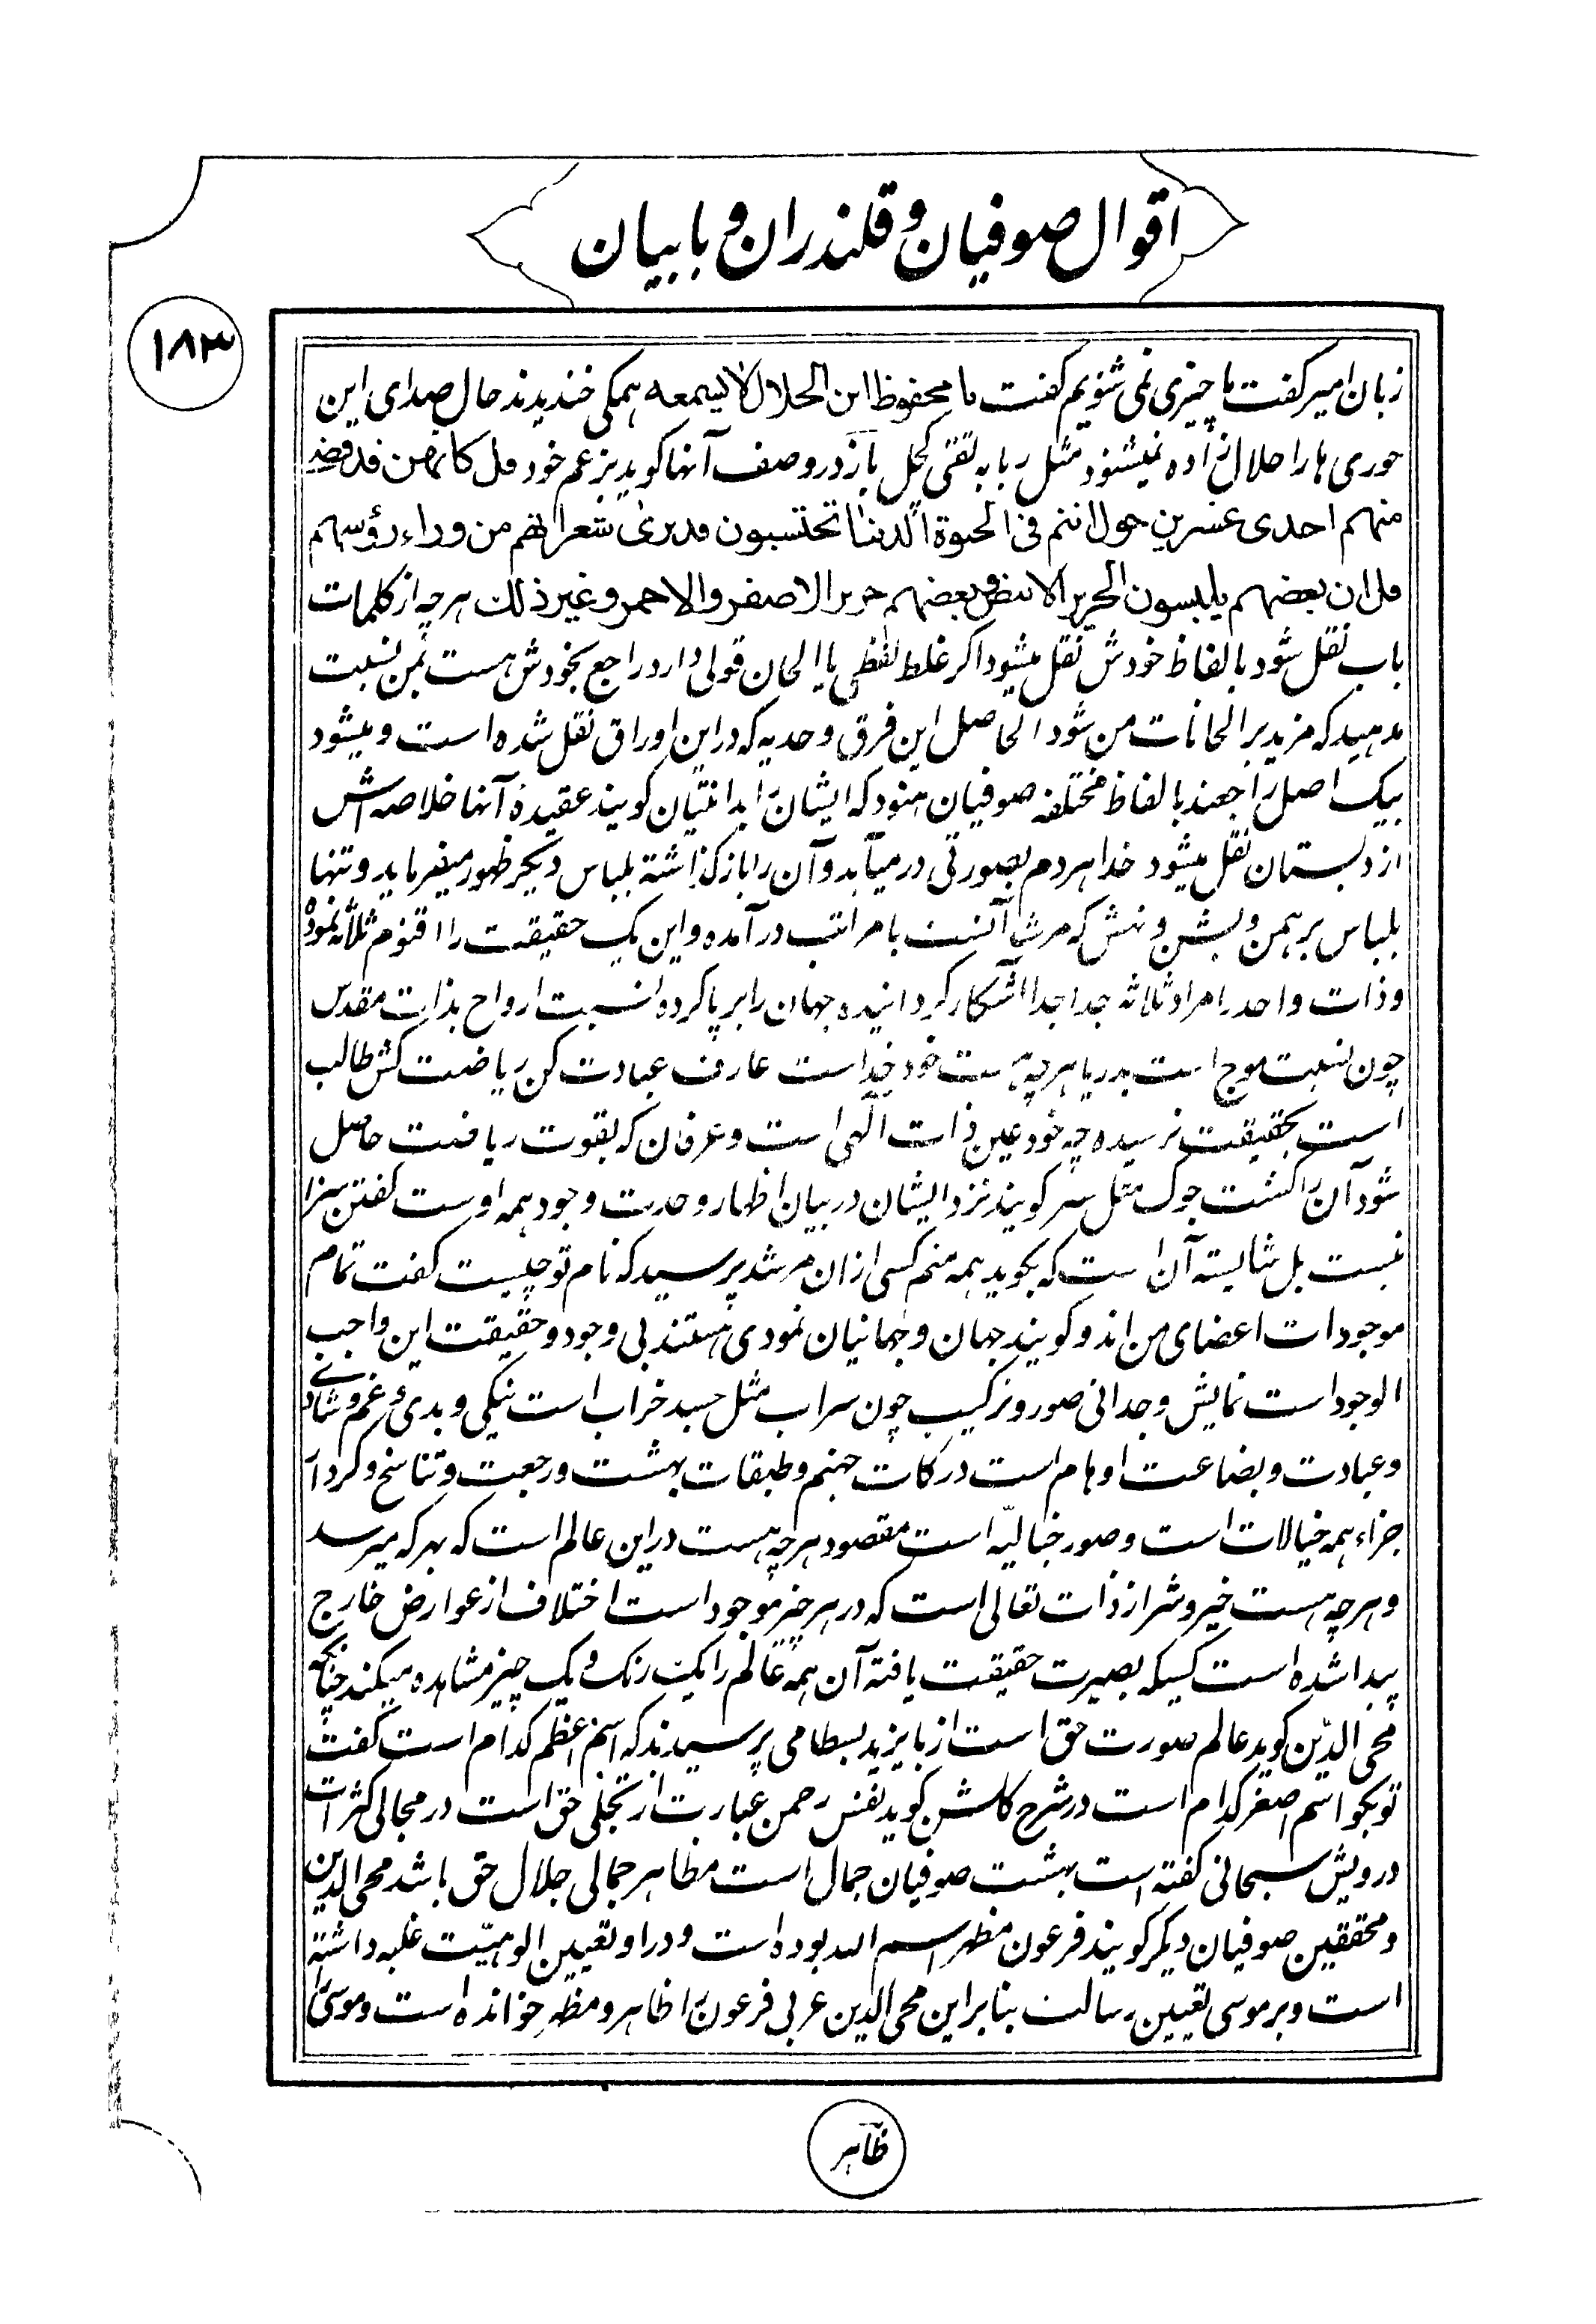 اقوال صوفیان و قلندران و بابیان
۱۸۳
زبان امیر گفت ما چیزی نمی شنویم گفت ما محفوظ ابن الحلال لا یسمعه همگی خندیدند حال صدای این
حوری ها را حلال زاده نمیشنود مثل ربابه تقتی کحل باز در وصف آنها گوید بزعم خود قل کانهن قد قضی
منهم احدی عشرین حول انتم فی الحیوة الدنیا تحتسبون قد یری شعراتهم من وراء رؤسهم
قل ان بعضهم یلبسون الحریر الابیض و بعضهم حریر الاصفر والاحمر و غیر ذلك هرچه از کلمات
باب نقل شود بالفاظ خودش نقل میشود اکر غلط لفظی یا الحان قولی دارد راجع بخودش هست بمن نسبت
مدهید که مزید بر الحانات من شود الحاصل این فرق وحدیه که در این اوراق نقل شده است و میشود
بیک اصل راجعند بالفاظ مختلفه صوفیان هنود که ایشان را بدانتیان کویند عقیدهٔ آنها خلاصه اش
از دبستان نقل میشود خدا هر دم بصورتی در میآید و آن را باز گذاشته بلباس دیکر ظهور میفرماید و تنها
بلباس برهمن و بشن و مهش که مرتب آنست با مراتب در آمده و این یک حقیقت را اقنوم ثلاثه نموده
و ذات واحد را مراد ثلاثه جدا جدا آشکار کردانیده جهان را برپا کرده نسبت ارواح بذات مقدس
چون نسبت موج است بدریا هرچه هست خود خداست عارف عبادت کن ریاضت کش طالب
است بحقیقت نرسیده چه خود عین ذات الهی است و عرفان که بقوت ریاضت حاصل
شود آن را کشت جوک مثل سر کویند نزد ایشان در بیان اظهار وحدت وجود همه اوست گفتن سزا
نیست بل شایسته آن است که بکوید همه منم کسی از ان مرشد پرسید که نام تو چیست گفت تمام
موجودات اعضای من اند و کویند جهان و جهانیان نمودی هستند بی وجود و حقیقت این واجب
الوجود است نمایش وجدانی صور و ترکیب چون سراب مثل جسد خراب است نیکی و بدی و غم و شادی
و عبادت و بضاعت اوهام است درکات جهنم و طبقات بهشت و رجعت و تناسخ و کردار
جزاء همه خیالات است و صور خیالیّه است مقصود هرچه هست در این عالم است که بهر که میرسد
و هرچه هست خیر و شر از ذات تعالی است که در هر چیز موجود است اختلاف از عوارض خارج
پیدا شده است کسیکه بصیرت حقیقت یافته آن همه عالم را یک رنک و یک چیز مشاهده میکند چنانکه
محی الدّین کوید عالم صورت حق است از بایزید بسطامی پرسیدند که اسم اعظم کدام است گفت
تو بکو اسم اصغر کدام است در شرح کلشن کوید نفس رحمن عبارت از تجلی حق است در مجالی کثرات
درویش سبحانی گفته است بهشت صوفیان جمال است مظاهر جمالی جلال حق باشد محی الدین
و محققین صوفیان دیکر کویند فرعون مظهر اسم الله بوده است و در او تعیین الوهیّت غلبه داشته
است و بر موسی تعیین رسالت بنابراین محی الدین عربی فرعون را ظاهر و مظهر خوانده است و موسی را
ظاهر